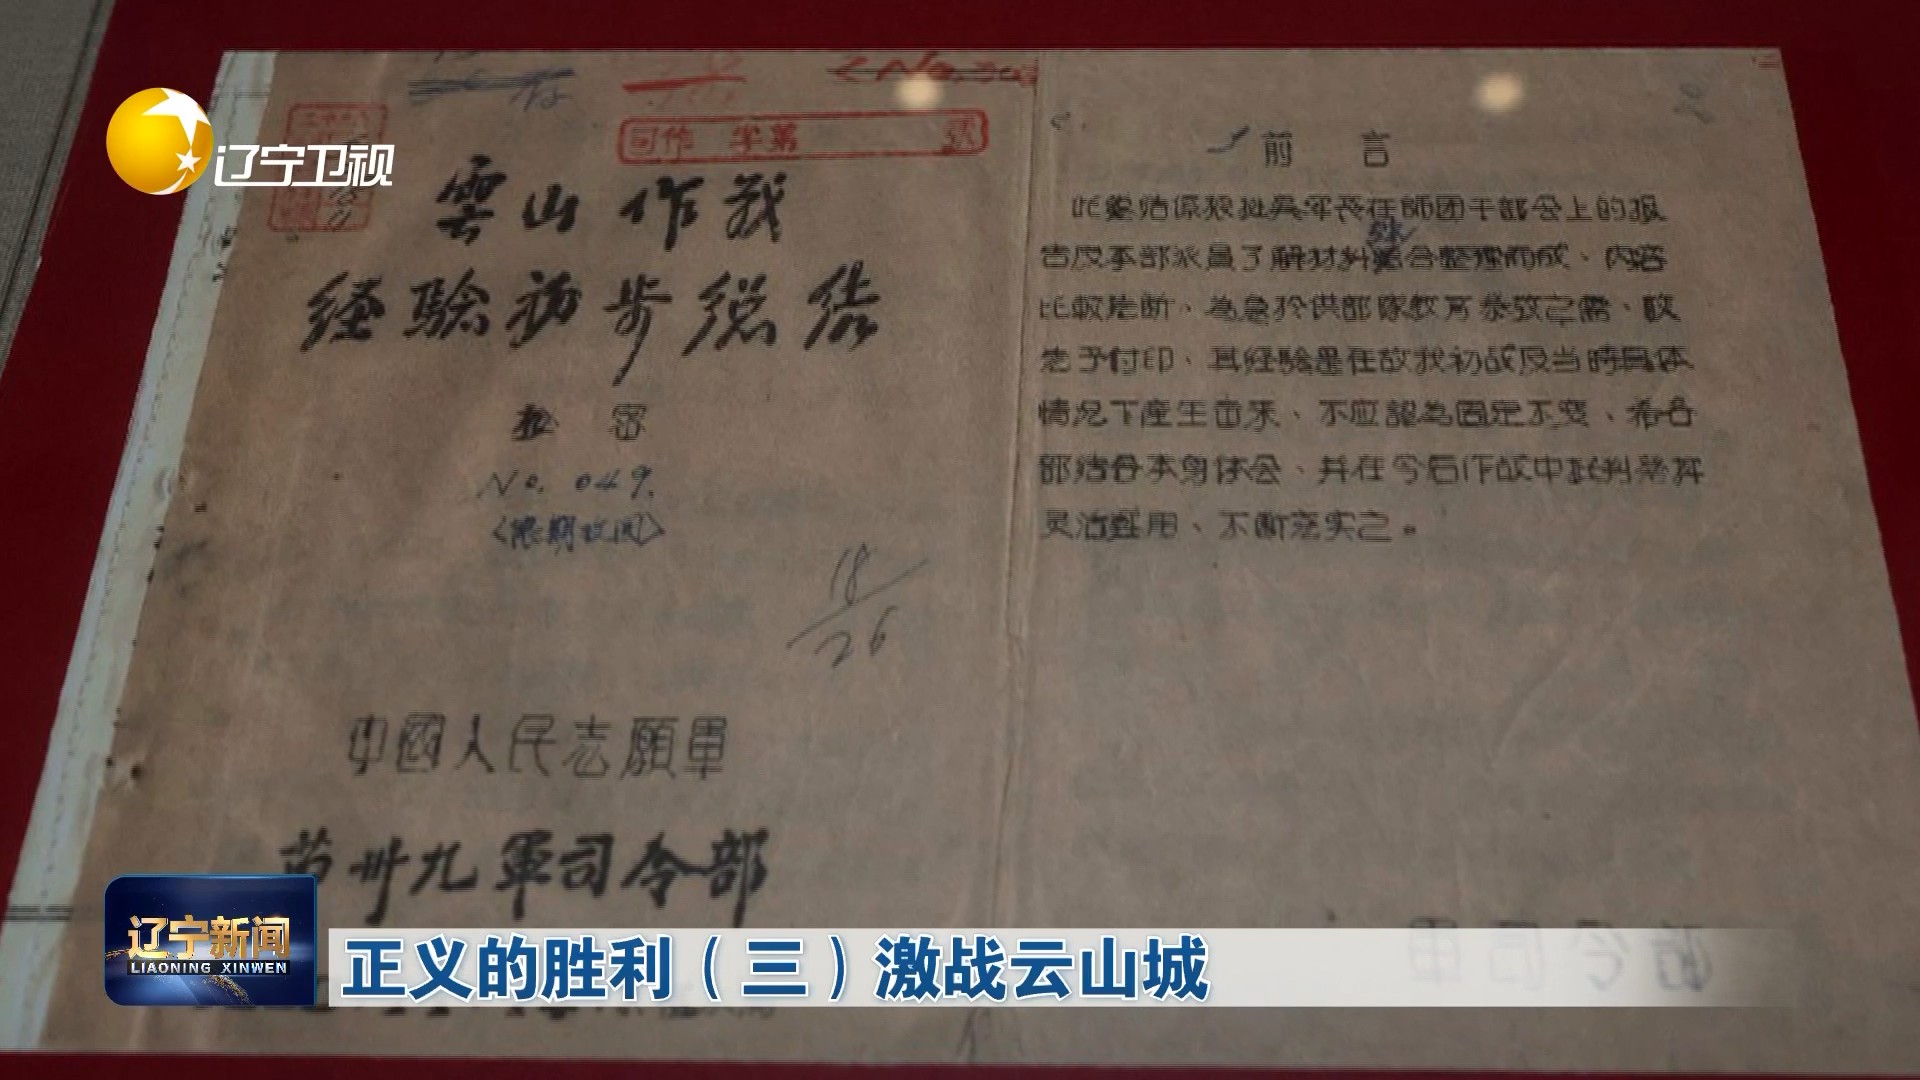 辽宁卫视
司作 字第 號
雲山作战
经验初步總结
秘密
No. 049.
<限期收回>
18/26
中國人民志願軍
第卅九軍司令部
前言
此總结係根据吴军长在師团干部会上的报
告及本部派員了解材料綜合整理而成、内容
比較片断、為急於供部隊教育参考之需、故
先予付印、其经驗是在敌我初战及当時具体
情况下産生出来、不应認為固定不变、希各
部结合本身体会、并在今后作战中批判発揮
灵活運用、不断充实之。
辽宁新闻
LIAONING XINWEN
正义的胜利（三）激战云山城